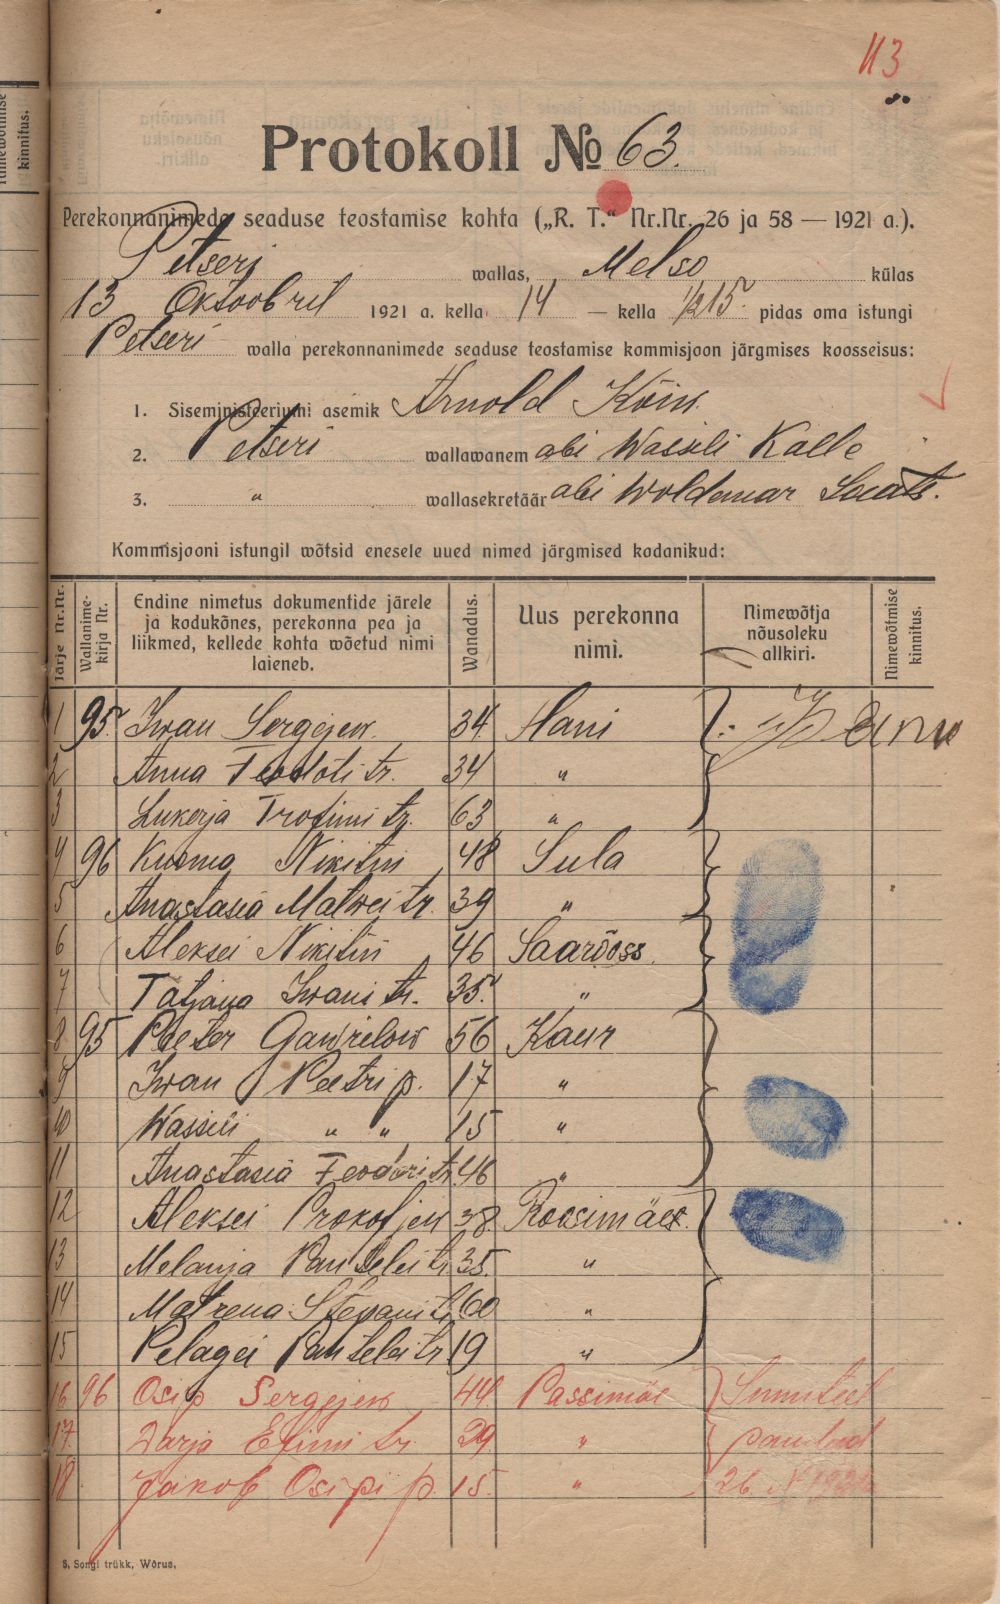 113
Protokoll № 63.
Perekonnanimede seaduse teostamise kohta („R. T." Nr.Nr. 26 ja 58 — 1921 a.).
Petseri wallas, Melso külas
13 Oktoobril 1921 a. kella 14 — kella ½15 pidas oma istungi
Petseri walla perekonnanimede seaduse teostamise kommisjoon järgmises koosseisus:
1. Siseministeeriumi asemik Arnold Kõiw.
2. Petseri wallawanem abi Wassili Kalle
3. " wallasekretäär abi Woldemar
Kommisjooni istungil wõtsid enesele uued nimed järgmised kodanikud:
Järje Nr.Nr. Wallanimekirja Nr. Endine nimetus dokumentide järele ja kodukõnes, perekonna pea ja liikmed, kellede kohta wõetud nimi laieneb. Wanadus. Uus perekonna nimi. Nimewõtja nõusoleku allkiri. Nimewõtmise kinnitus.
1 95. Iwan Sergejew. 34. Hani
2 Anna Feodoti tr. 34 "
3 Lukerja Trofimi tr. 63 "
4 96 Kusma Nikitin 48 Sula
5 Anastasia Matwei tr. 39 "
6 Aleksei Nikitin 46 Saarõoss.
7 Tatjana Iwani tr. 35. "
8 95 Peeter Gawrilow 56 Kaur
9 Iwan Peetri p. 17 "
10 Wassili " " 15 "
11 Anastasia Feodori tr. 46 "
12 Aleksei Prokofjew 38
13 Melanja Pantelei tr. 35. "
14 Matrena Stepani tr. 60 "
15 Pelagei Pantelei tr. 19 "
16 96 Osip Sergejew 44. Passimäe
17. Darja Efimi tr. 29 "
18 Jakob Osipi p. 15. "
S. Songi trükk, Wõrus.